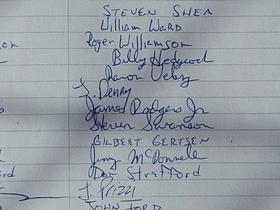 STEVEN SHER
William WARD
Roger Williamson
Billy
Aaron
J. Denny
James Rodgers Jr
Steven Swanson
GILBERT GERTSEN
Jimmy McDonnell
Stratford
J Prizzi
JOHN FORD